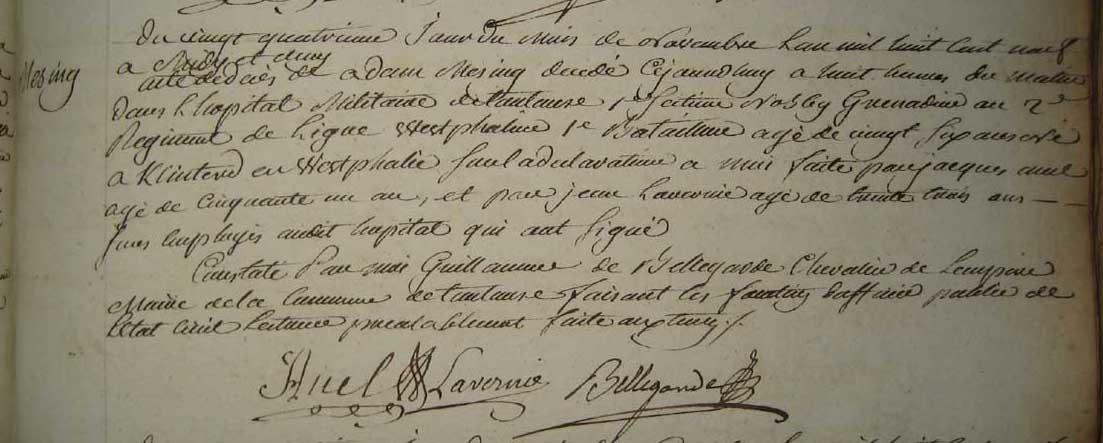 Mesing
Du vingt quatrieme Jour du Mois de Novembre L'an mil huit cent neuf
a Midy et demy
acte de decès de adam Mesing decedé Cejourdhuy a huit heures du matin
dans L'hopital Militaire de toulouse Grenadier au 2e
Regiment de Ligne Westphalien 1e Bataillon agé de vingt six ans né
a Klinterd en Westphalie Sur la declaration a moi faite par jacques auel
agé de Cinquante un an, et par jean Lavernie agé de trente trois ans —
tous employés audit hopital qui ont Signé
Constaté Par moi Guillaume de Bellegarde Chevalier de L'empire
Maire de la Commune de toulouse faisant les fonctions d'officier public de
l'Etat Civil Lecture prealablement faite aux
Auel Lavernie Bellegarde